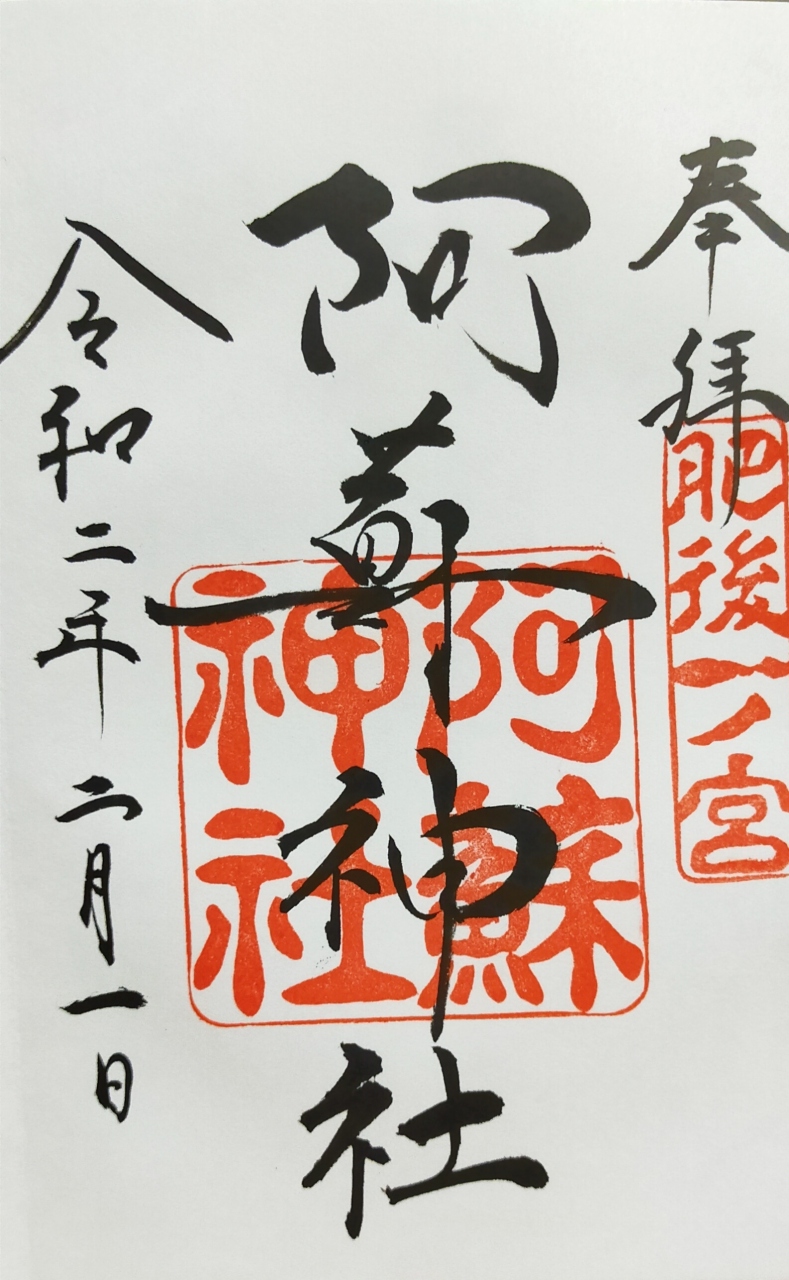 奉拝
肥後一ノ宮
阿蘇神社
阿蘇
神社
令和二年二月一日